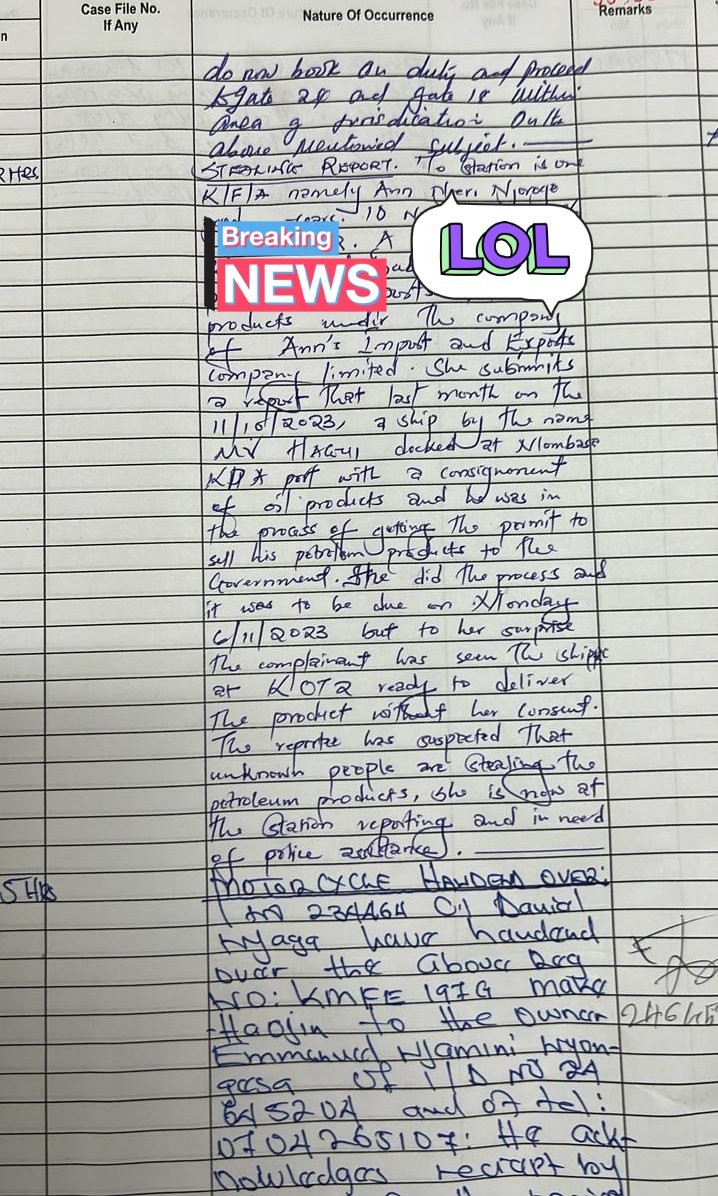 Case File No.
If Any
Nature Of Occurrence
Remarks
n
do now book on duty and proceed
to gate 24 and gate 18 within
area of jurisdication on the
above mentioned subject.
RHRS
STEALING REPORT. To station is one
K/F/A namely Ann Njeri Njoroge
years. 10
R. A
Breaking
NEWS
LOL
products under The company
of Ann's Import and Exports
company limited. She submits
a report That last month on the
11/10/2023, a ship by the name
MV HAGUI docked at Mombasa
KPA port with a consignment
of oil products and he was in
the process of getting The permit to
sell his petroleum products to the
Government. She did the process and
it was to be due on Monday
6/11/2023 but to her surprise
The complainant has seen The ship
at KOT2 ready to deliver
The product without her consent.
The reportee has suspected That
unknown people are stealing the
petroleum products, she is now at
the station reporting and in need
of police assistance.
5 HRS
MOTOR CYCLE HANDED OVER:
I NO 234464 C.I Daniel
Nyaga have handend
over the above Reg
NO: KMFE 197G make
Haojin to the owner
Emmanuel Nyamini Nyon-
gesa of I/D NO 24
645204 and of tel:
0704265107: He ack-
nowledges receipt by